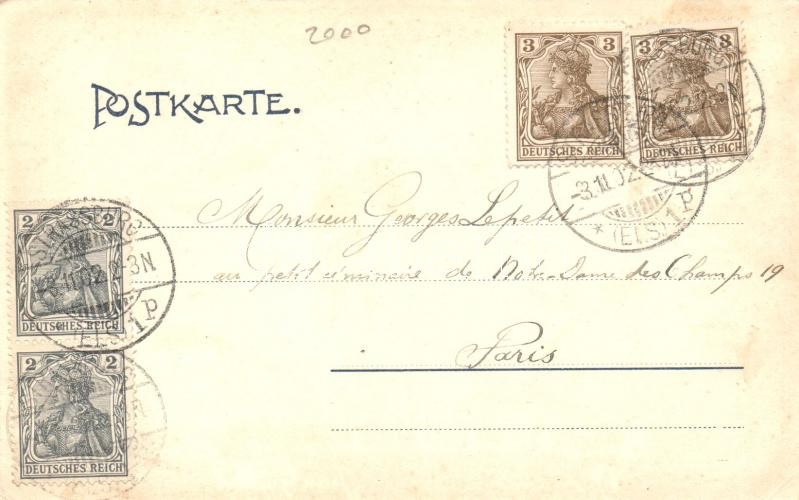 2000
3 3
DEUTSCHES REICH DEUTSCHES REICH
POSTKARTE.
3.11.02.
* (ELS) 1 P
2 2
STRASSBURG
3.11.02. 2-3N
(ELS) 1 P
DEUTSCHES REICH
2 2
DEUTSCHES REICH
Monsieur Georges Lepetit
au petit séminaire de Notre-Dame des Champs 19
Paris